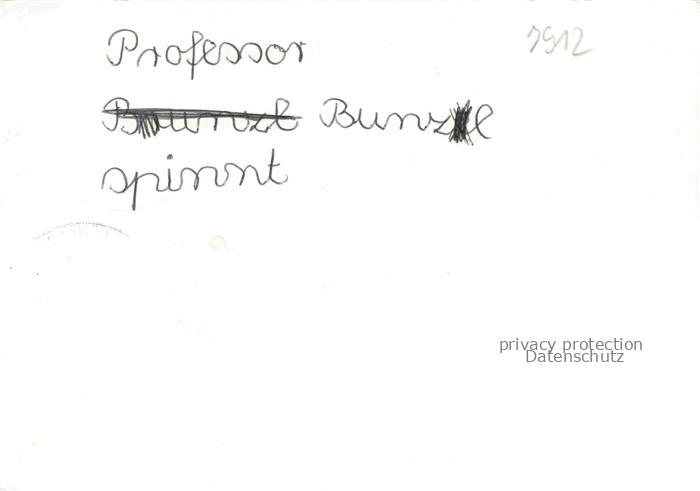 Professor 7912
Bunzl
spinnt
privacy protection
Datenschutz